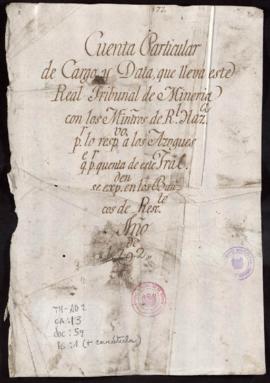 Cuenta Particular
de Cargo y Data, que lleva este
Real Tribunal de Mineria
con los Mintros de Rl Hazda
pr lo respvo a los Azogues
q pr quenta de este Tral
se expden en los Ban
cos de Reste
Año
de
TM-AD2
CA: 13
doc: 59
(+ carátula)